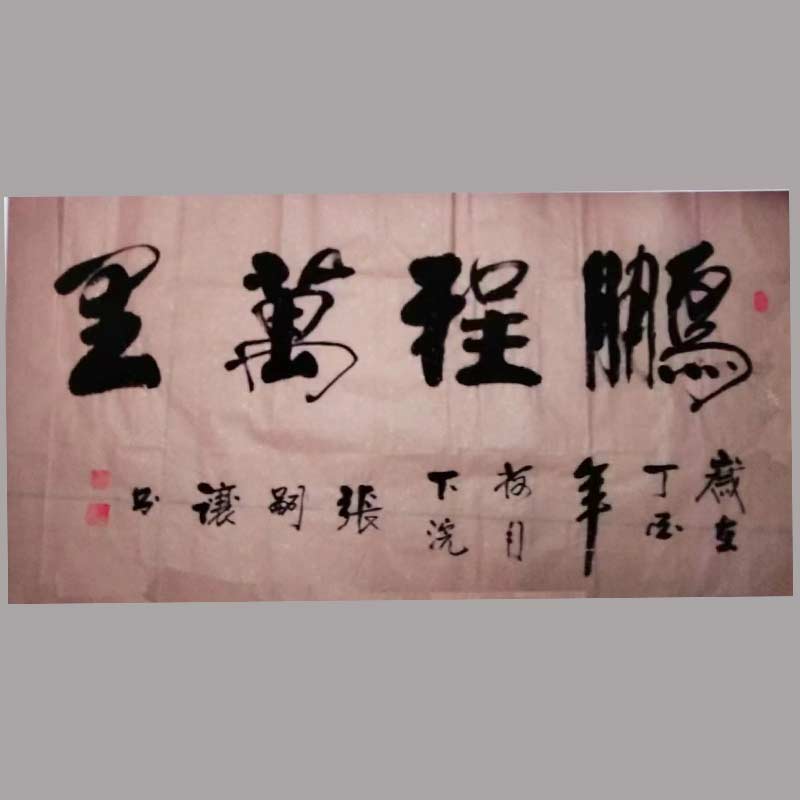 鵬程萬里
歲在丁酉年梅月下浣張嗣讓書